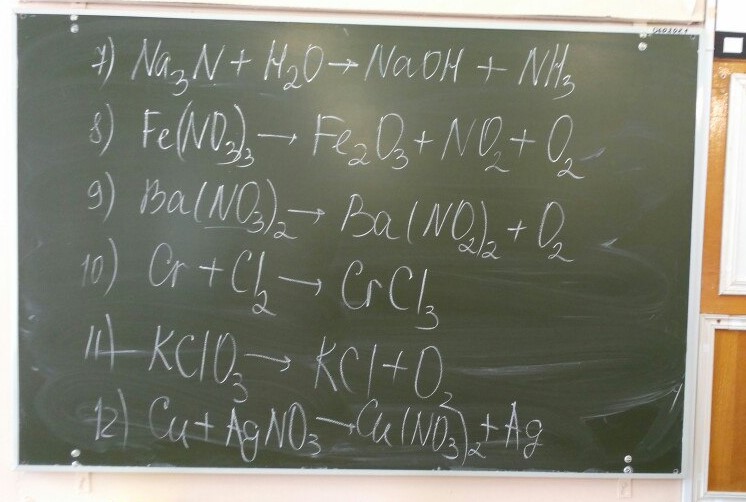 7) Na₃N + H₂O → NaOH + NH₃
8) Fe(NO₃)₃ → Fe₂O₃ + NO₂ + O₂
9) Ba(NO₃)₂ → Ba(NO₂)₂ + O₂
10) Cr + Cl₂ → CrCl₃
11) KClO₃ → KCl + O₂
12) Cu + AgNO₃ → Cu(NO₃)₂ + Ag